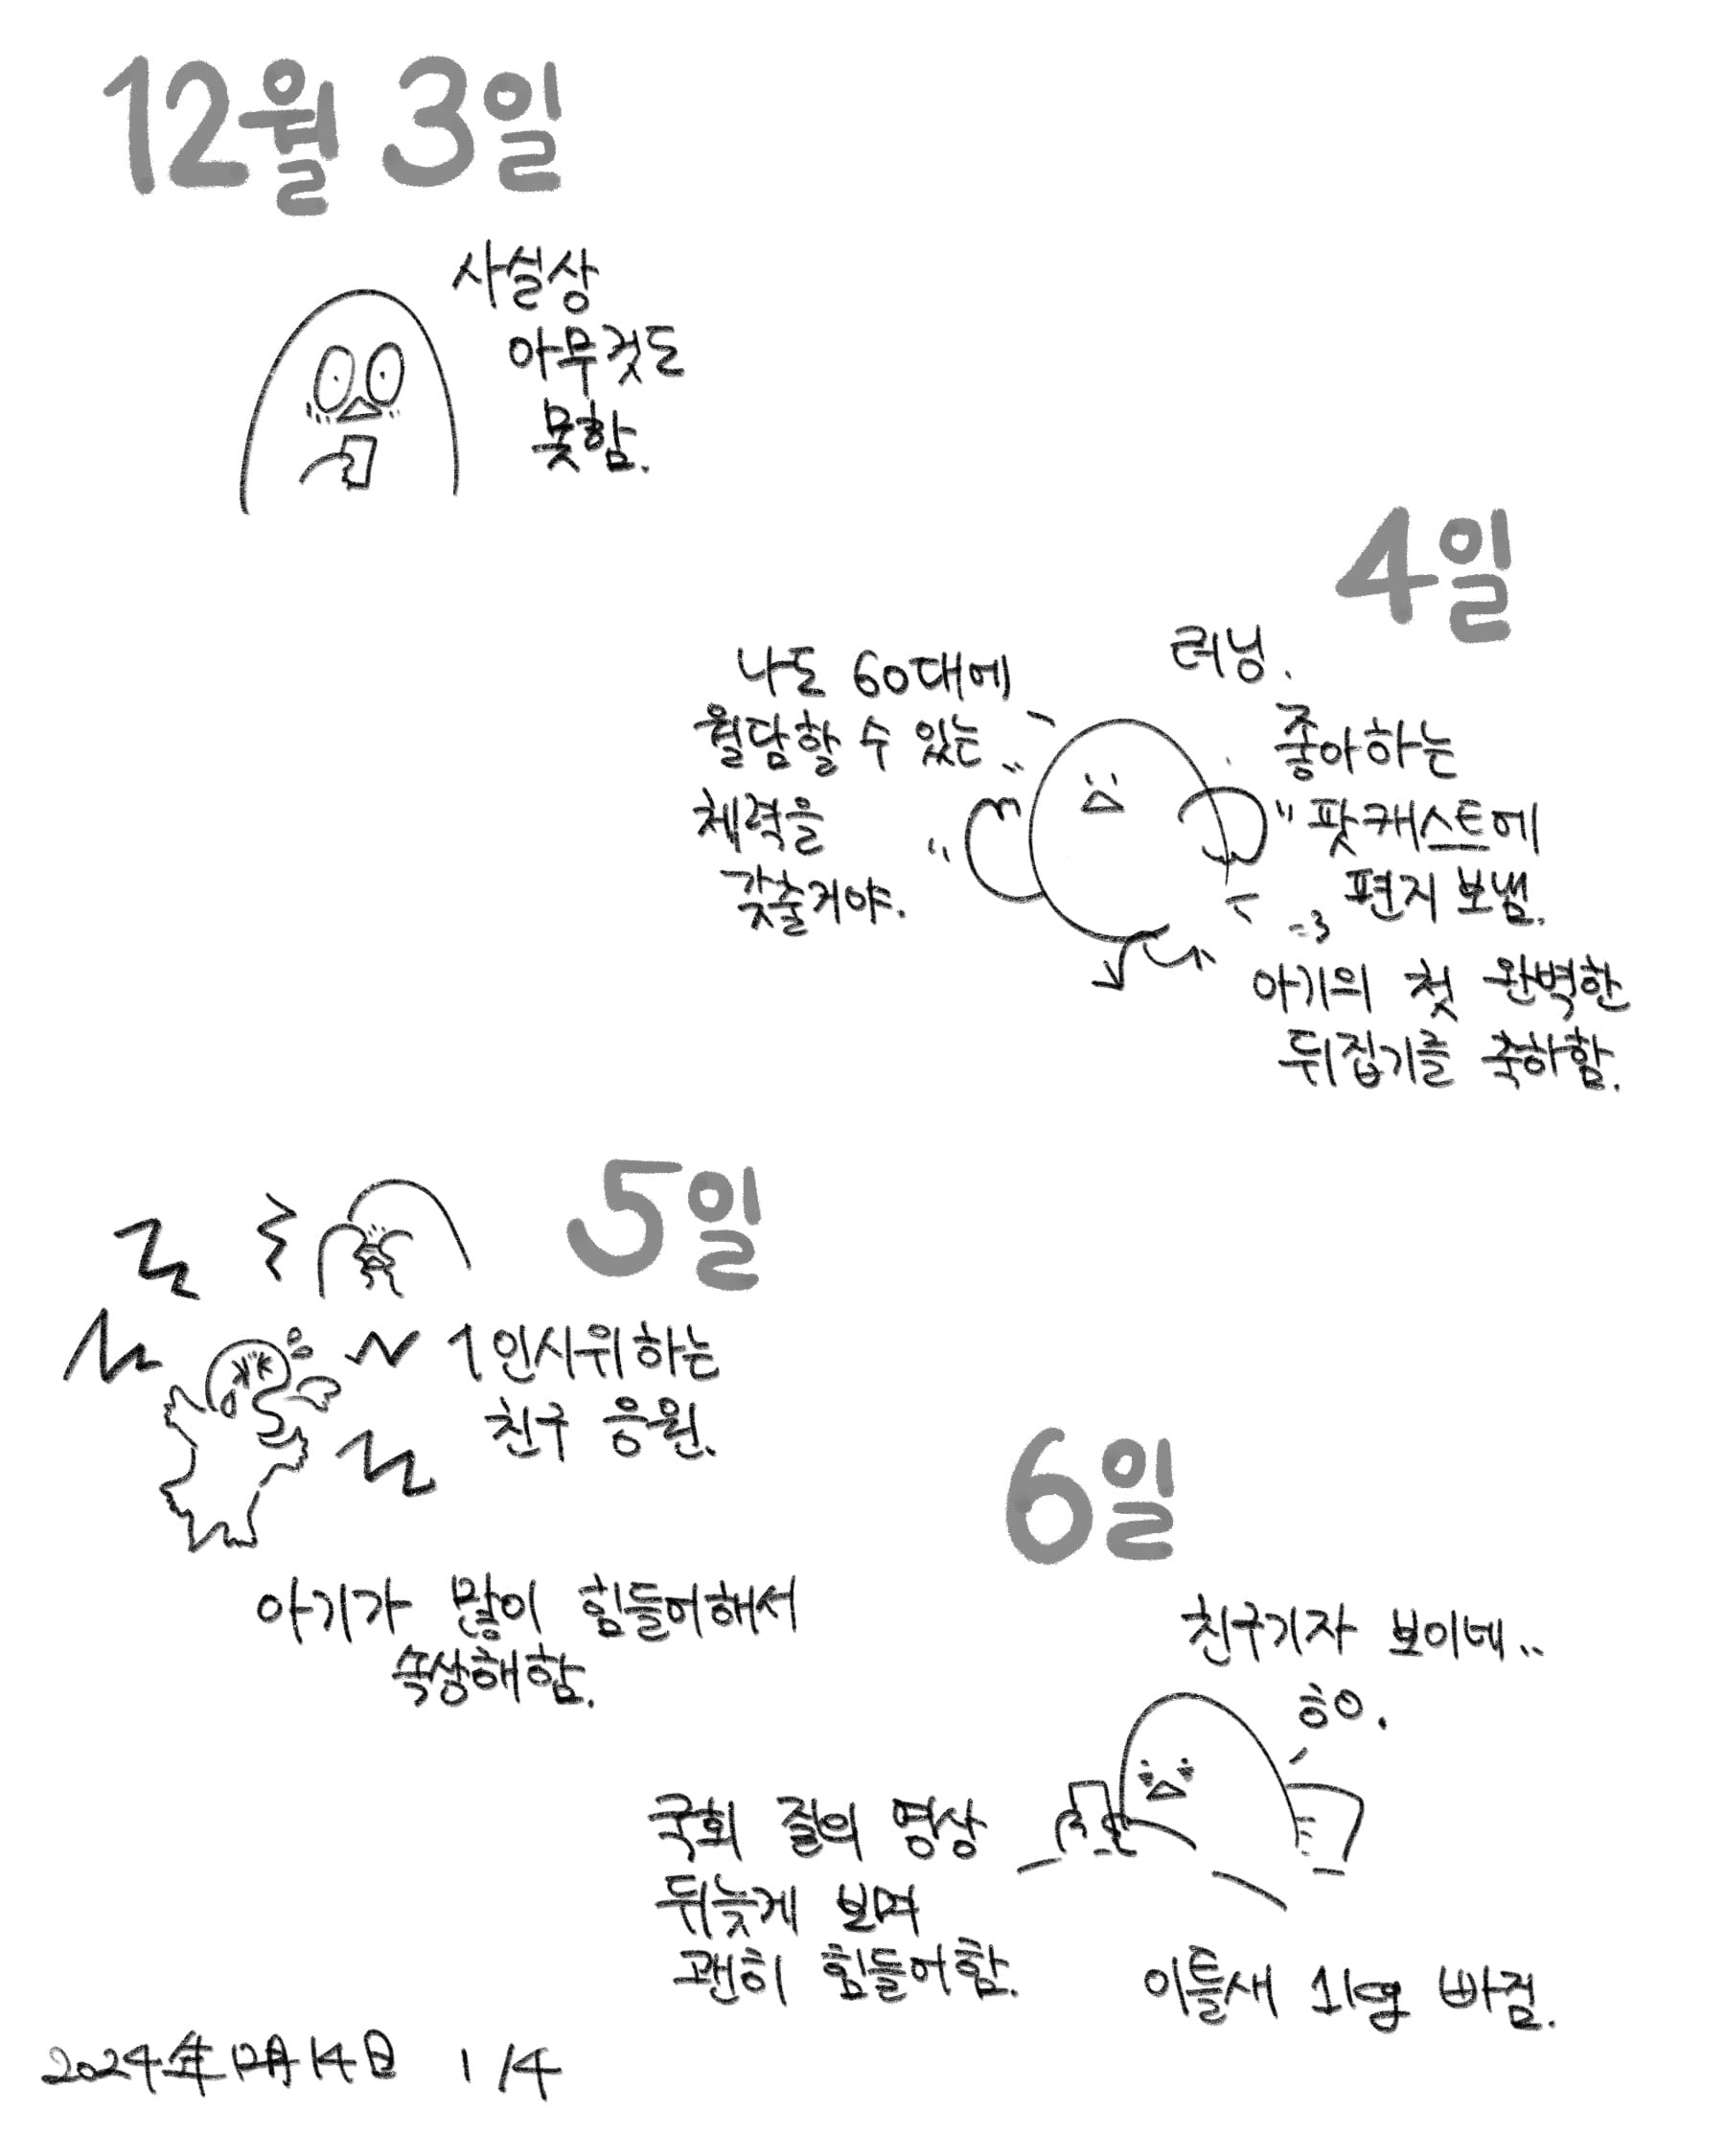 12월 3일
사실상
아무것도
못함.
4일
러닝.
나도 60대에
월담할 수 있는
체력을
갖출거야.
좋아하는
팟캐스트에
편지 보냄.
아기의 첫 완벽한
뒤집기를 축하함.
5일
1인시위하는
친구 응원.
아기가 많이 힘들어해서
속상해함.
6일
친구기자 보이네..
흐으.
국회 질의 영상
뒤늦게 보며
괜히 힘들어함.
이틀새 빠짐.
2024年12月14日 1/4